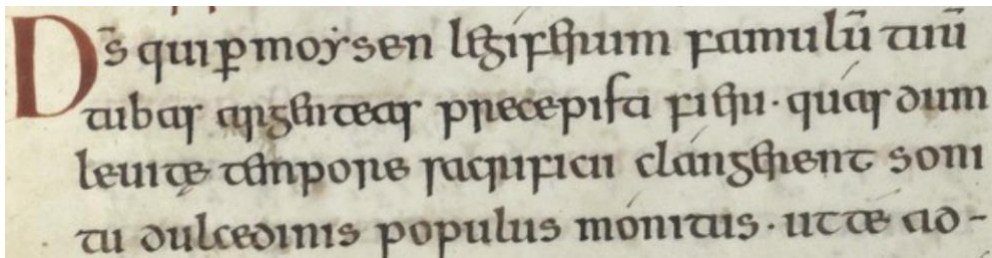 Ds̄ qui ꝑ moẏsen legiferum famulū tuū
tubas argenteas precepisti fieri · quas dum
leuitę tempore sacrificii clángerent soni
tu dulcedinis populus mónitus · ut te ad-